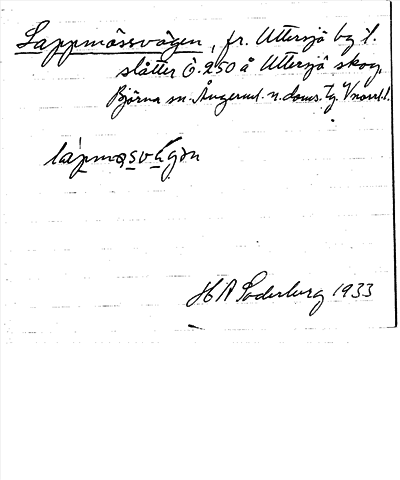 Lappmössvägen, fr. Uttersjö by t.
slåtter Ö. 250 å Uttersjö skog,
Björna sn. Ångerml. n. doms. Tg. Vnorrl. l.
H A Söderberg 1933